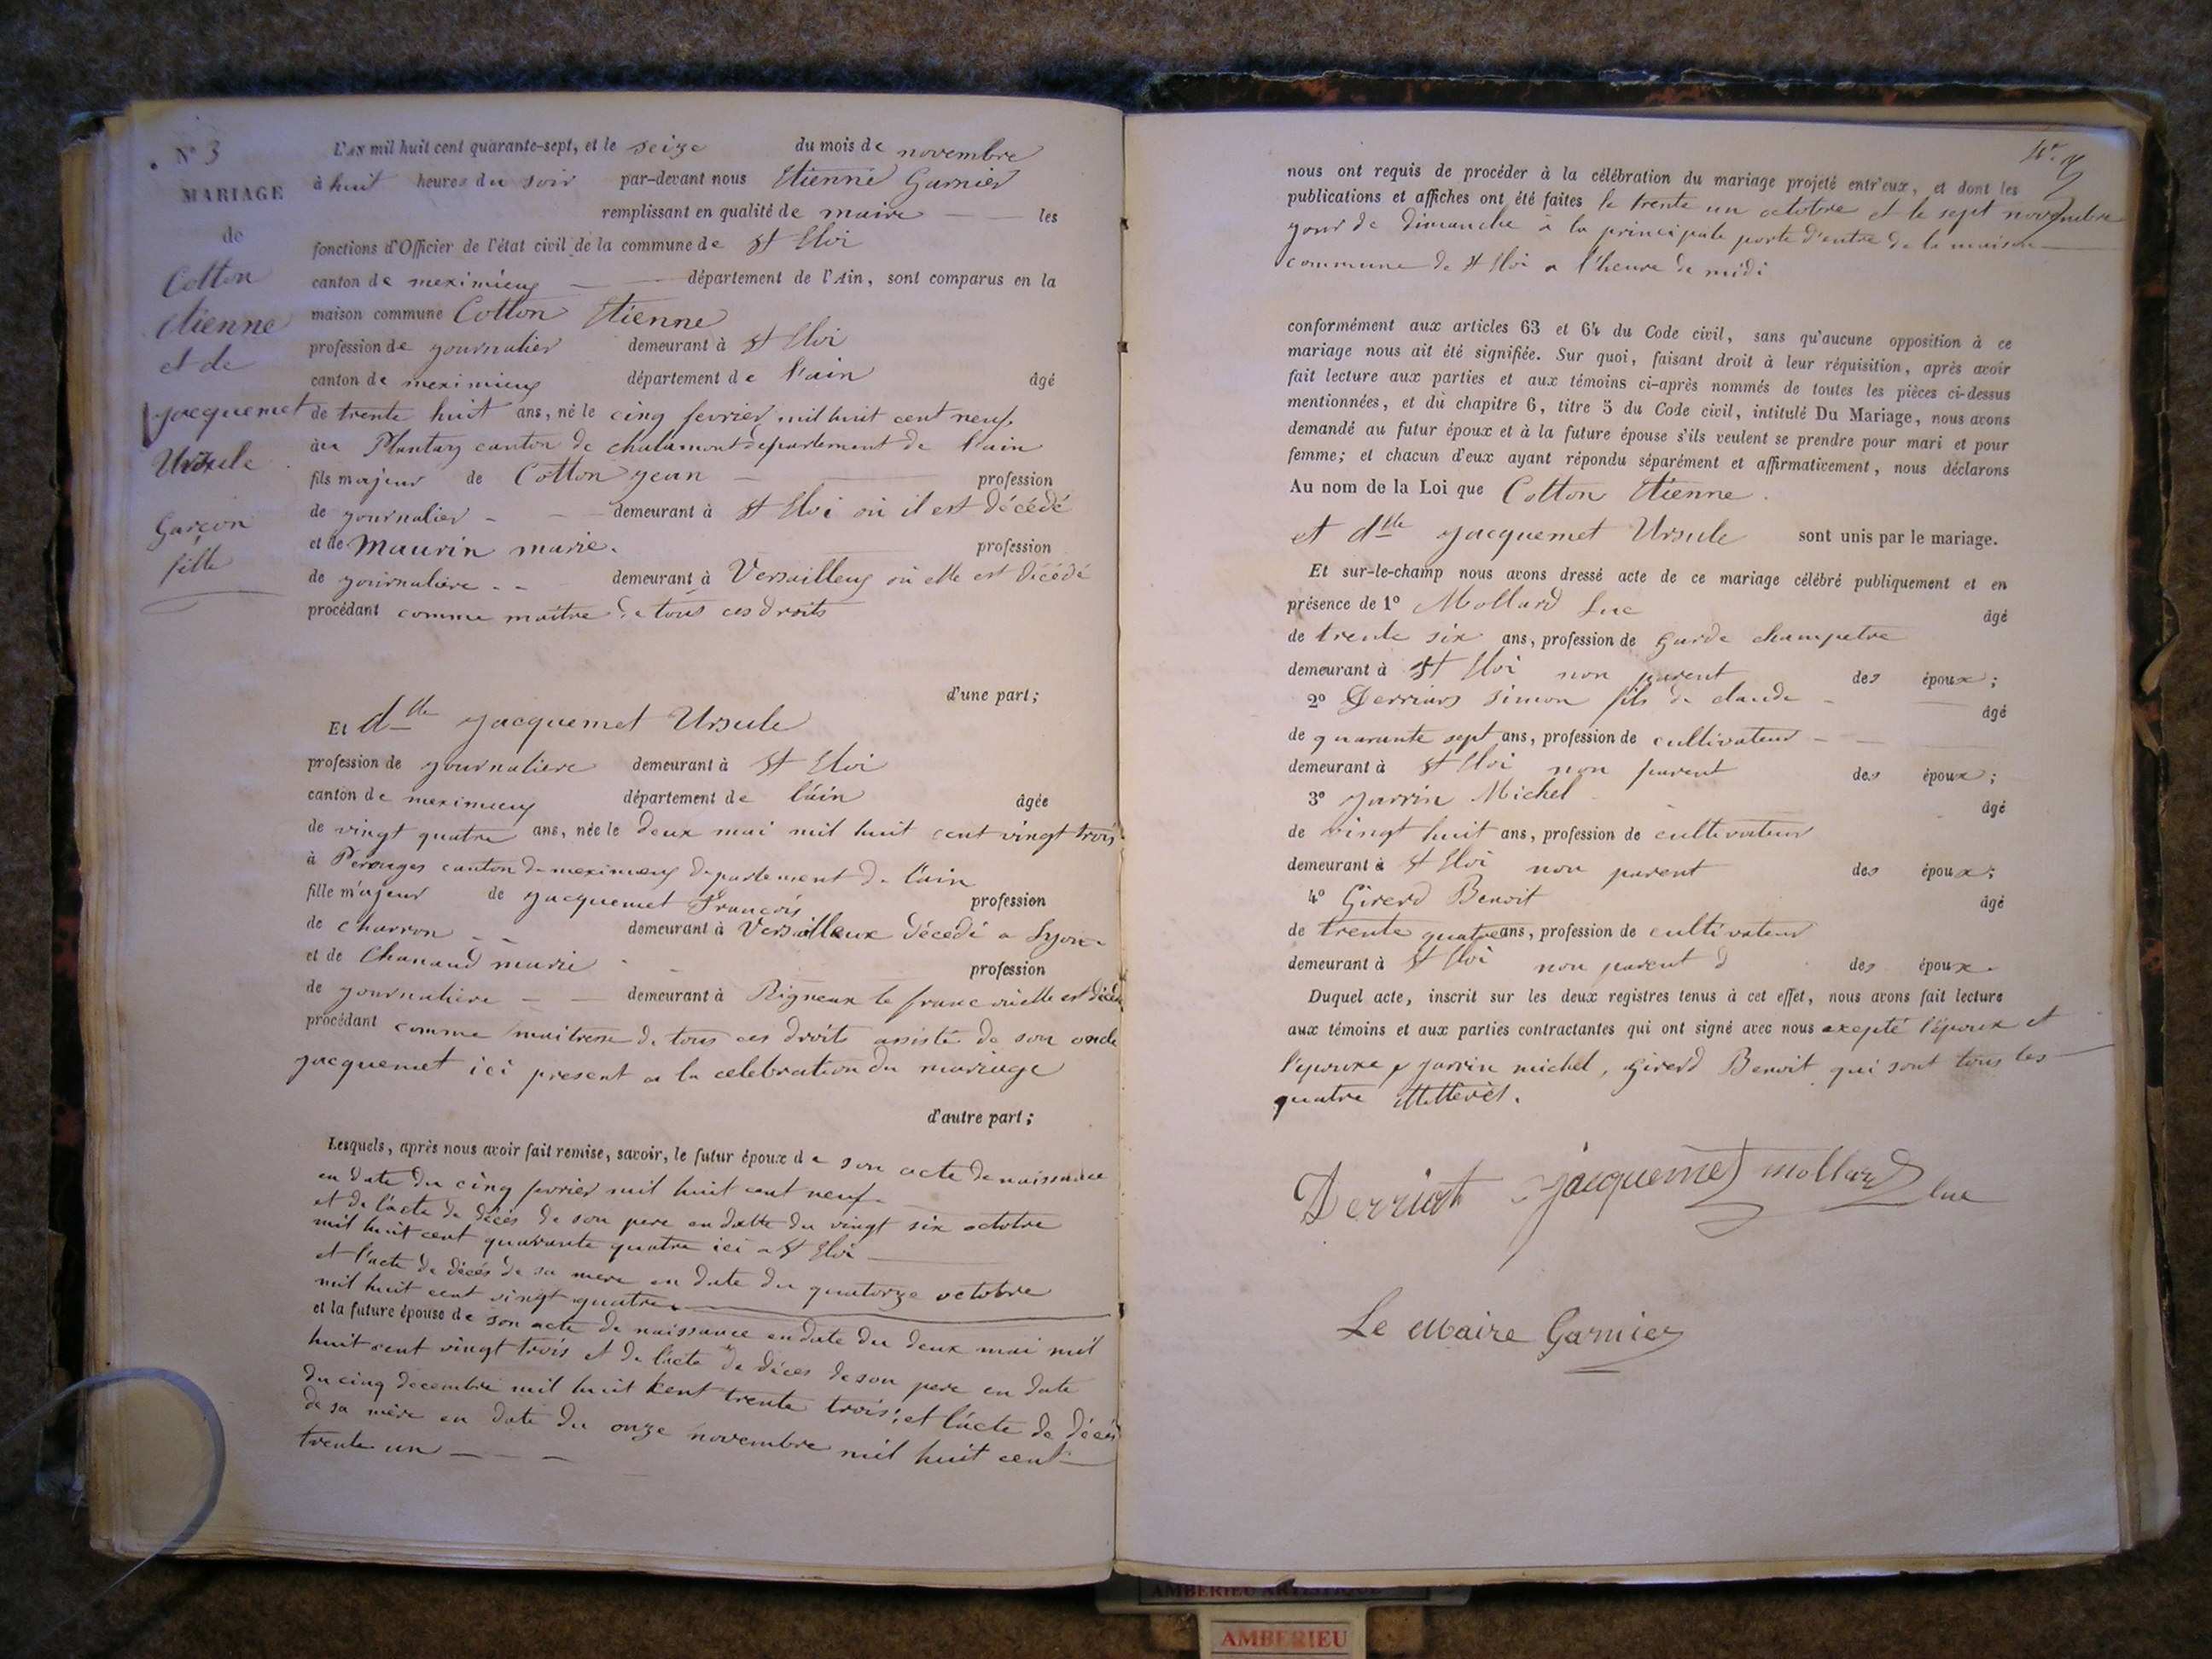 N° 3
MARIAGE
de
Cotton
etienne
et de
jacquemet
Ursule
Garçon
fille
L'AN mil huit cent quarante-sept, et le seize du mois de novembre
à huit heures du soir par-devant nous Etienne Garnier
remplissant en qualité de maire les
fonctions d'Officier de l'état civil de la commune de St Eloi
canton de meximieux département de l'Ain, sont comparus en la
maison commune Cotton Etienne
profession de journalier demeurant à St Eloi
canton de meximieux département de l'ain âgé
de trente huit ans, né le cinq fevrier mil huit cent neuf
au Plantay canton de chalamont departement de l'ain
fils majeur de Cotton jean profession
de journalier demeurant à St Eloi où il est décédé
et de Maurin marie. profession
de journaliere demeurant à Versailleux où elle est décédé
procédant comme maître de tous ces droits
d'une part;
Et dlle jacquemet Ursule
profession de journaliere demeurant à St Eloi
canton de meximieux département de l'ain âgée
de vingt quatre ans, née le deux mai mil huit cent vingt trois
à Perouges canton de meximieux departement de l'ain
fille majeur de jacquemet François profession
de charron demeurant à Versailleux décédé a Lyon
et de Chanaud marie profession
de journaliere demeurant à Rigneux le franc où elle est décédé
procédant comme maitresse de tous ces droits assisté de son oncle
jacquemet ici present a la celebration du mariage
d'autre part;
Lesquels, après nous avoir fait remise, savoir, le futur époux de son acte de naissance
en date du cinq fevrier mil huit cent neuf
et de l'acte de décès de son pere en datte du vingt six octobre
mil huit cent quarante quatre ici a St Eloi
et l'acte de décés de sa mere en date du quatorze octobre
mil huit cent vingt quatre
et la future épouse de son acte de naissance en date du deux mai mil
huit cent vingt trois et de l'acte de décés de son pere en date
du cinq decembre mil huit cent trente trois; et l'acte de décés
de sa mère en date du onze novembre mil huit cent
trente un
nous ont requis de procéder à la célébration du mariage projeté entr'eux, et dont les
publications et affiches ont été faites le trente un octobre et le sept novembre
jour de dimanche à la principale porte d'entre de la maison
commune de St Eloi a l'heure de midi
conformément aux articles 63 et 64 du Code civil, sans qu'aucune opposition à ce
mariage nous ait été signifiée. Sur quoi, faisant droit à leur réquisition, après avoir
fait lecture aux parties et aux témoins ci-après nommés de toutes les pièces ci-dessus
mentionnées, et du chapitre 6, titre 5 du Code civil, intitulé Du Mariage, nous avons
demandé au futur époux et à la future épouse s'ils veulent se prendre pour mari et pour
femme; et chacun d'eux ayant répondu séparément et affirmativement, nous déclarons
Au nom de la Loi que Cotton Etienne.
et dlle jacquemet Ursule sont unis par le mariage.
Et sur-le-champ nous avons dressé acte de ce mariage célébré publiquement et en
présence de 1° Mollard Luc âgé
de trente six ans, profession de garde champetre
demeurant à St Eloi non parent des époux;
2° simon fils de claude âgé
de quarante sept ans, profession de cultivateur
demeurant à St Eloi non parent des époux;
3° jarrin Michel âgé
de vingt huit ans, profession de cultivateur
demeurant à St Eloi non parent des époux;
4° Girerd Benoit âgé
de trente quatre ans, profession de cultivateur
demeurant à St Eloi non parent d des époux.
Duquel acte, inscrit sur les deux registres tenus à cet effet, nous avons fait lecture
aux témoins et aux parties contractantes qui ont signé avec nous exepté l'époux et
l'epouxe jarrin michel, girerd Benoit qui sont tous les
quatre illetterés.
jacquemet mollard luc
Le Maire Garnier
AMBERIEU ARTISTIQUE
AMBERIEU